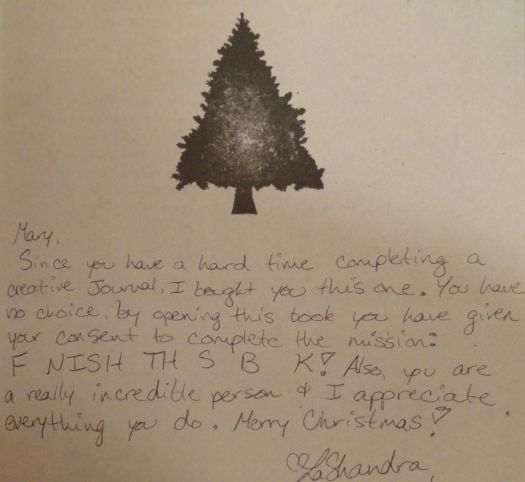 Mary,
Since you have a hard time completing a
creative Journal, I bought you this one. You have
no choice, by opening this book you have given
your consent to complete the mission:
F NISH TH S B K! Also, you are
a really incredible person & I appreciate
everything you do. Merry Christmas!
♡LaShandra,